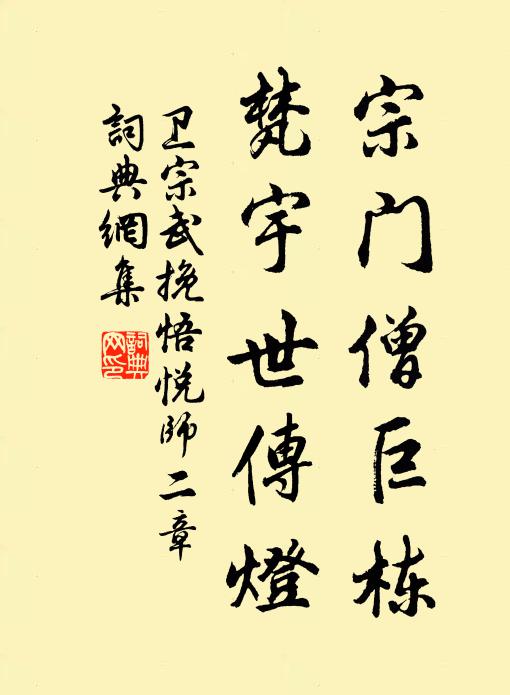 宗门僧巨栋
梵宇世傳燈
卫宗武挽悟悦師二章
詞典網集
詞典网印